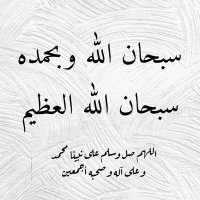 سبحان الله وبحمده
سبحان الله العظيم
اللهم صل وسلم على نبينا محمد
وعلى آله وصحبه أجمعين